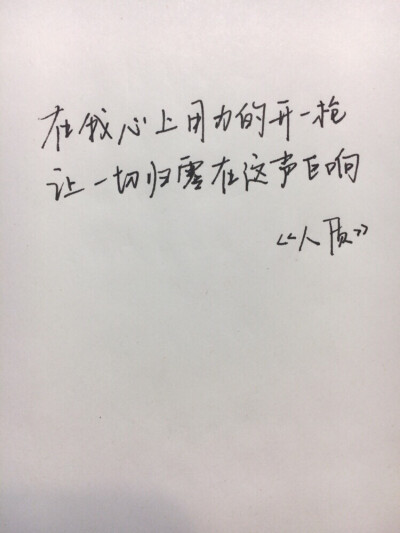 在我心上用力的开一枪
让一切归零在这声巨响
《人质》